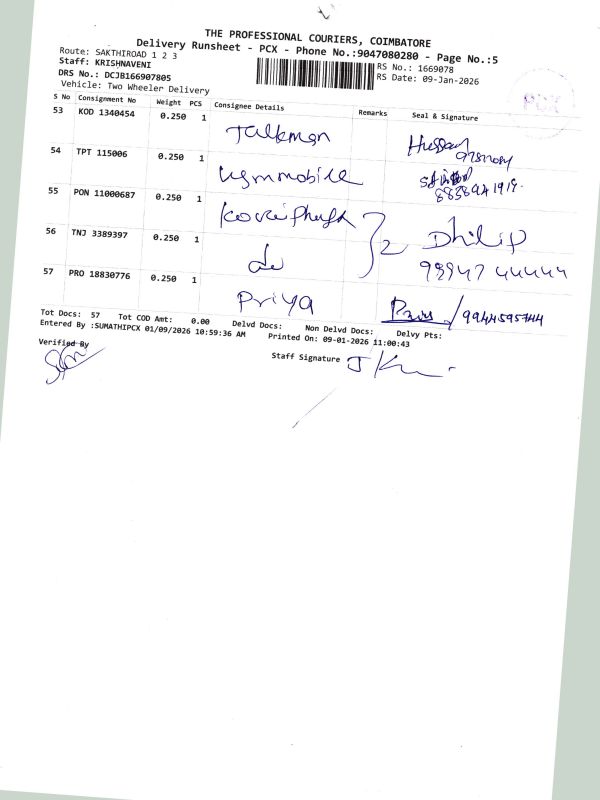 THE PROFESSIONAL COURIERS, COIMBATORE
Delivery Runsheet - PCX - Phone No.:9047080280 - Page No.:5
Route: SAKTHIROAD 1 2 3
Staff: KRISHNAVENI
RS No.: 1669078
DRS No.: DCJB166907805
RS Date: 09-Jan-2026
Vehicle: Two Wheeler Delivery
PCX
S No Consignment No Weight PCS Consignee Details Remarks Seal & Signature
53 KOD 1340454 0.250 1 Talkmon
54 TPT 115006 0.250 1 8838941919.
55 PON 11000687 0.250 1
56 TNJ 3389397 0.250 1 do } 2 Dhilip
99947 44444
57 PRO 18830776 0.250 1 Priya 9944595744
Tot Docs: 57 Tot COD Amt: 0.00 Delvd Docs: Non Delvd Docs: Delvy Pts:
Entered By :SUMATHIPCX 01/09/2026 10:59:36 AM Printed On: 09-01-2026 11:00:43
Verified By
Staff Signature